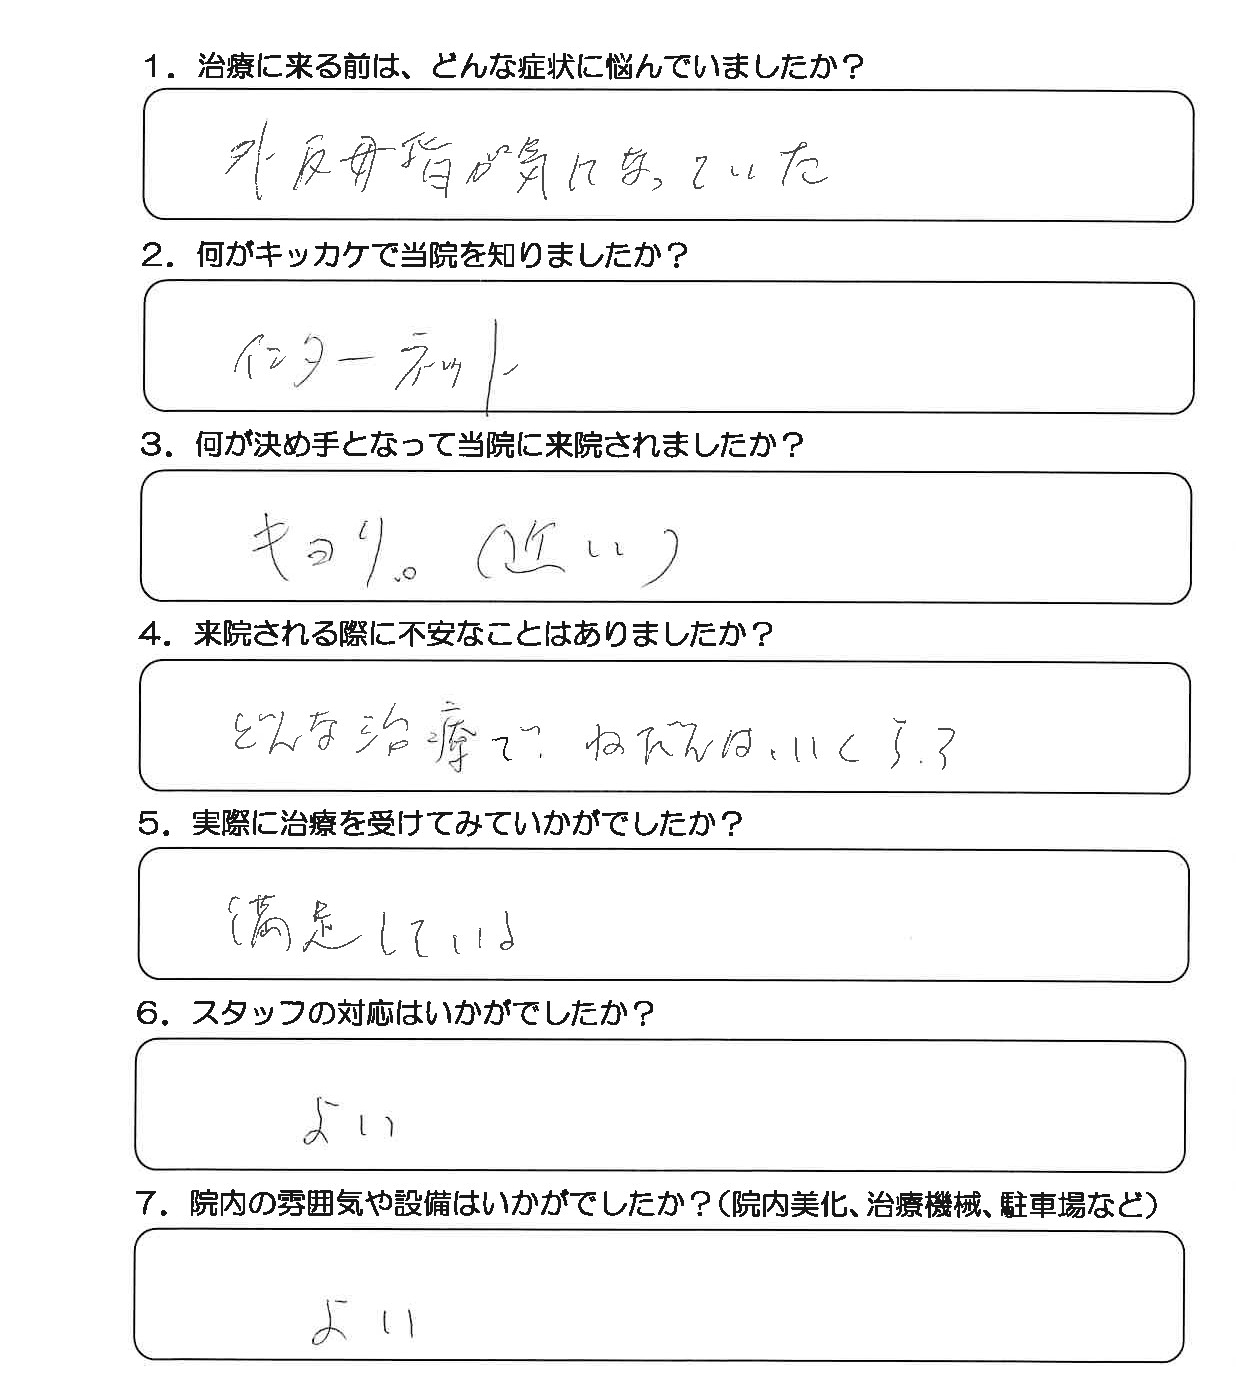 1. 治療に来る前は、どんな症状に悩んでいましたか？
外反母指が気になっていた
2. 何がキッカケで当院を知りましたか？
インターネット
3. 何が決め手となって当院に来院されましたか？
キョリ。(近い)
4. 来院される際に不安なことはありましたか？
どんな治療で、ねだんは、いくら？
5. 実際に治療を受けてみていかがでしたか？
満足している
6. スタッフの対応はいかがでしたか？
よい
7. 院内の雰囲気や設備はいかがでしたか？(院内美化、治療機械、駐車場など)
よい